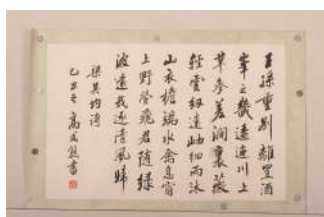 王孫重別離置酒
峯之畿逶迤川上
草參差澗裏薇
輕雲紉遠岫細雨沐
山衣檐端水禽息窗
上野螢飛君隨綠
波遠我逐清風歸
梁吳均詩
乙丑冬高文書